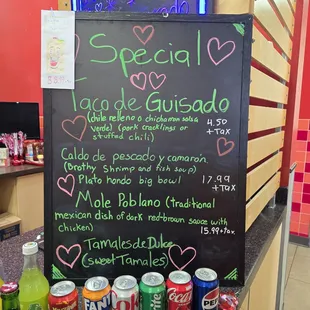 Special
Taco de Guisado
(chile relleno o chicharron salsa
verde) (pork cracklings or
stuffed chili)
4.50
+ Tax
Caldo de pescado y camarón
(Brothy shrimp and fish soup)
Plato hondo big bowl
17.99
+ Tax
Mole Poblano (traditional
mexican dish of dark red-brown sauce with
chicken)
15.99+tax
Tamales de Dulce
(sweet Tamales)
Coca-Cola
pepsi